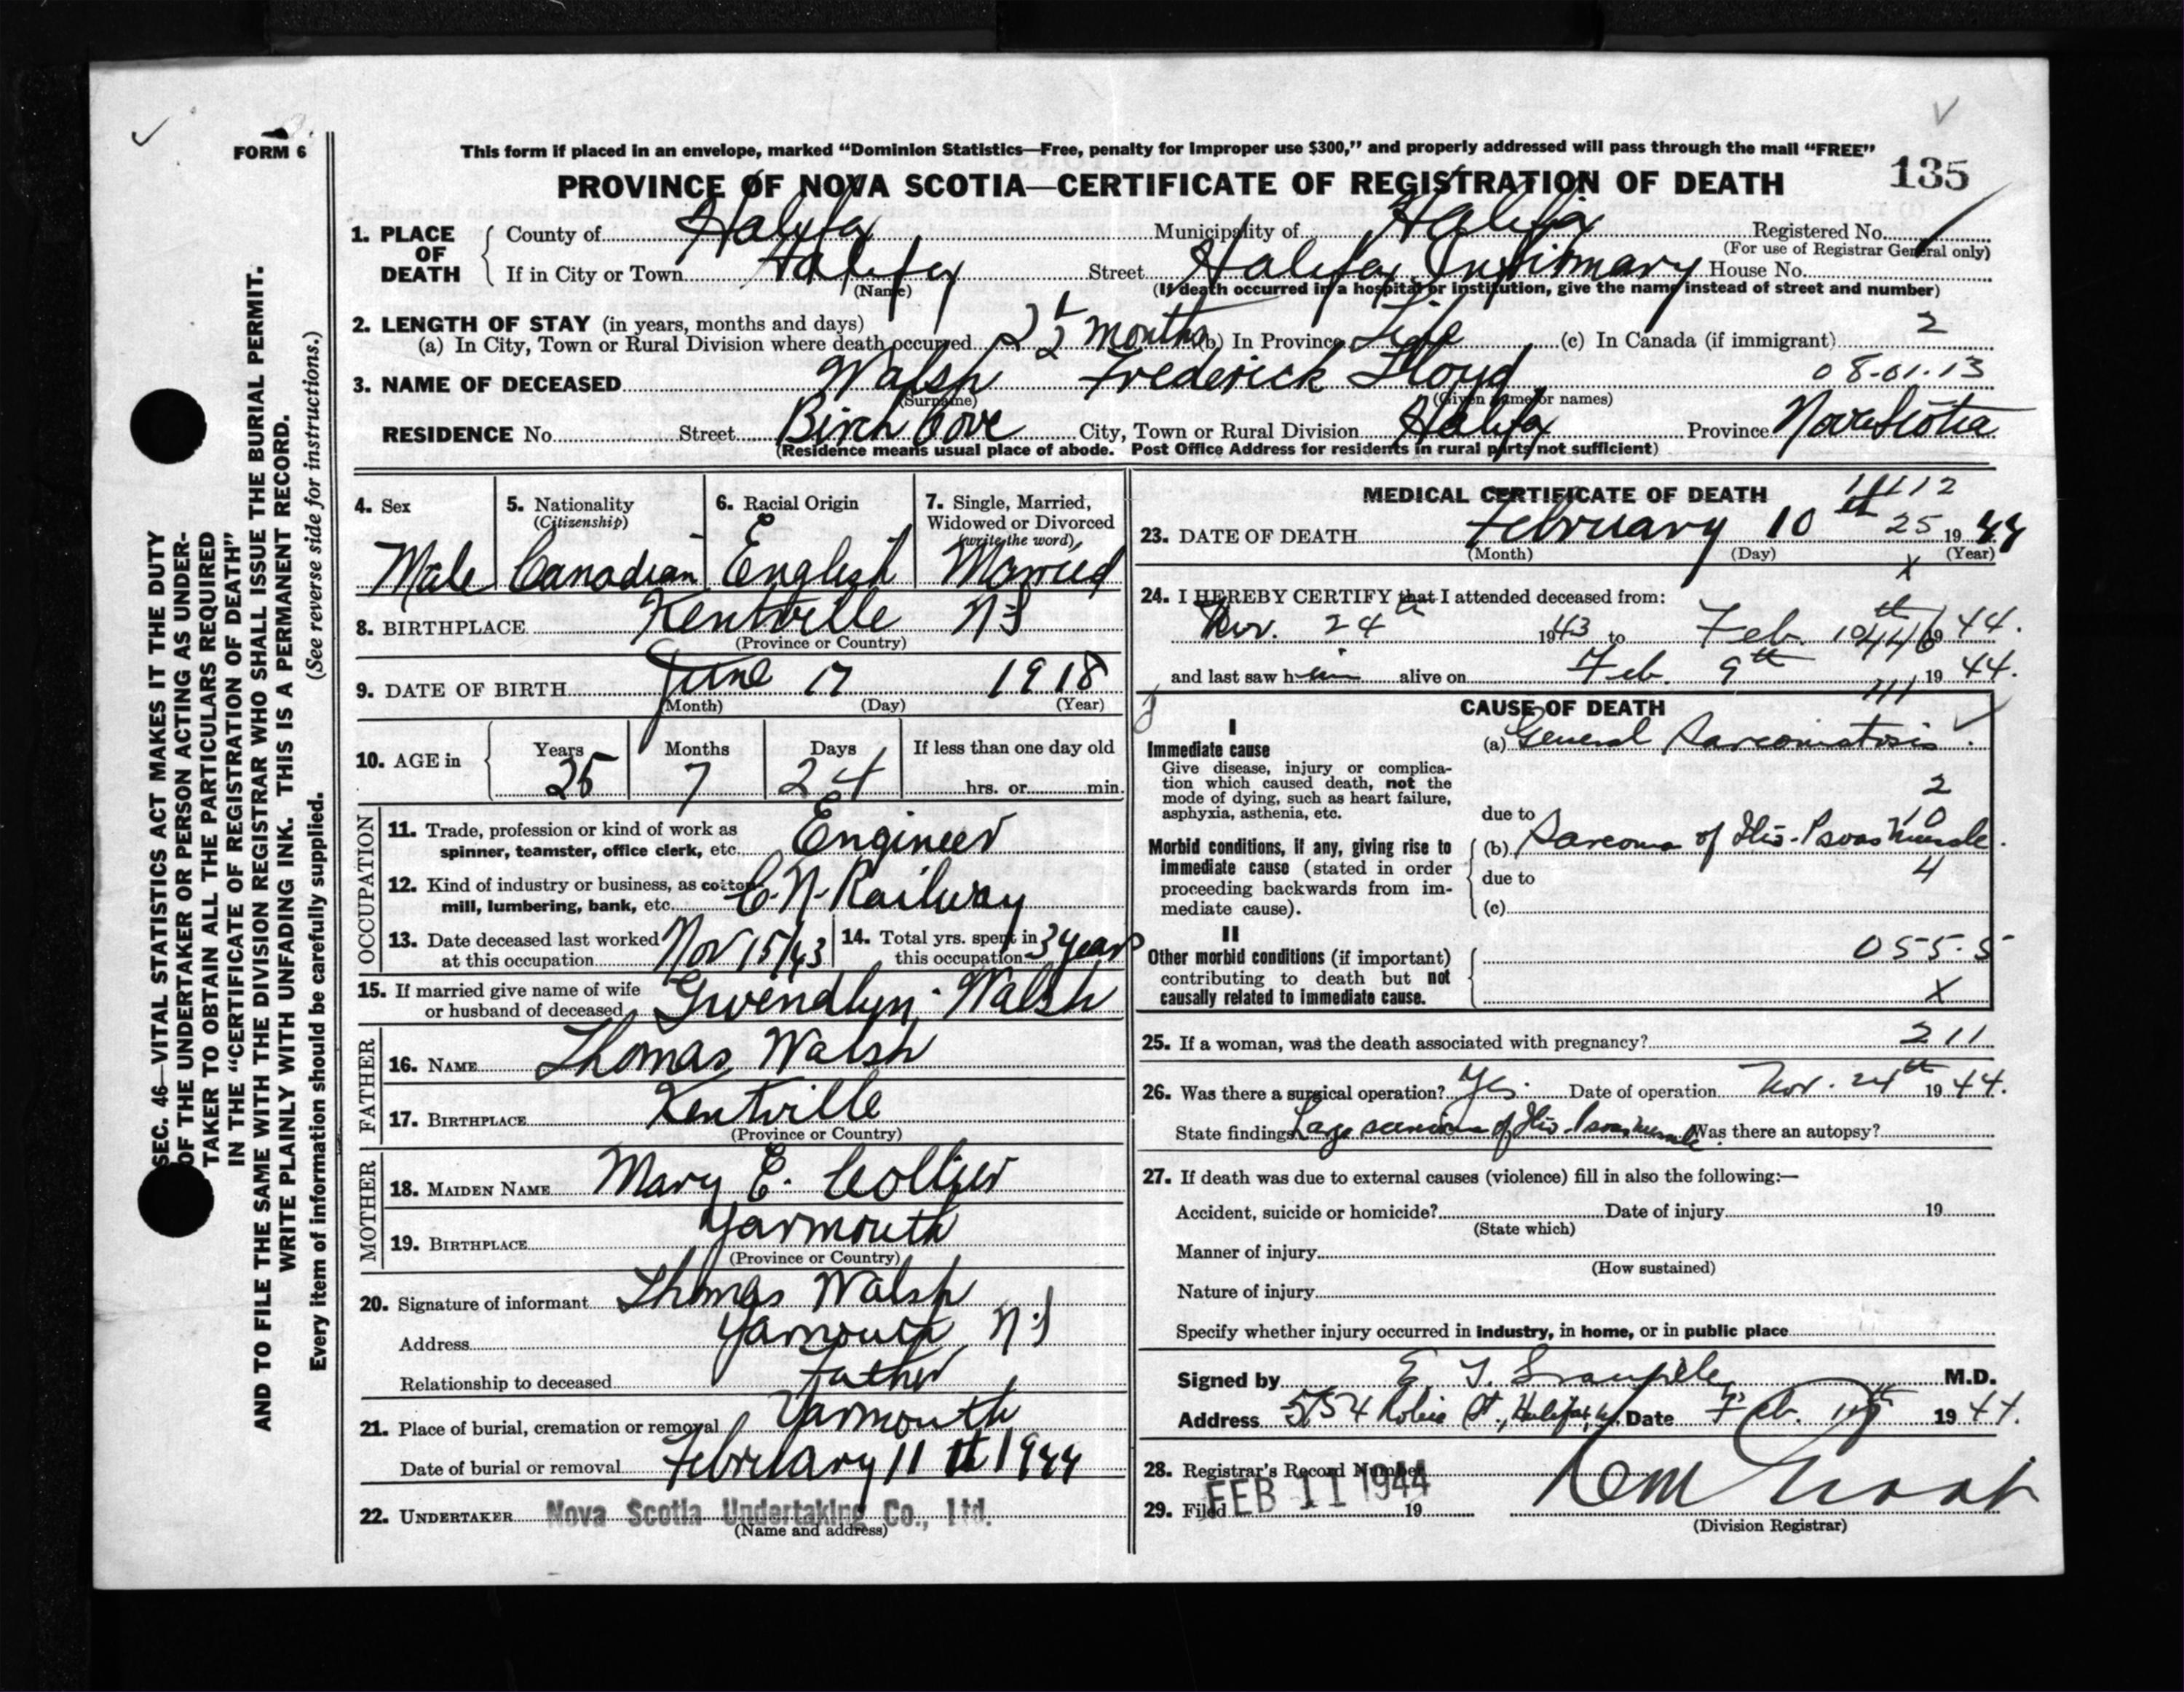 FORM 6
This form if placed in an envelope, marked “Dominion Statistics—Free, penalty for Improper use $300,” and properly addressed will pass through the mail “FREE”
PROVINCE OF NOVA SCOTIA—CERTIFICATE OF REGISTRATION OF DEATH 135
1. PLACE OF DEATH
County of Halifax Municipality of Halifax Registered No.
(For use of Registrar General only)
If in City or Town Halifax Street Halifax Infirmary House No.
(Name) (If death occurred in a hospital or institution, give the name instead of street and number)
2. LENGTH OF STAY (in years, months and days)
(a) In City, Town or Rural Division where death occurred 2½ months (b) In Province Life (c) In Canada (if immigrant) 2
3. NAME OF DECEASED Walsh Frederick Lloyd 08-01-13
(Surname) (Given name or names)
RESIDENCE No. Street Birch Cove City, Town or Rural Division Halifax Province Nova Scotia
(Residence means usual place of abode. Post Office Address for residents in rural parts not sufficient)
4. Sex
Male
5. Nationality
(Citizenship)
Canadian
6. Racial Origin
English
7. Single, Married,
Widowed or Divorced
(write the word)
Married
8. BIRTHPLACE Kentville N S
(Province or Country)
9. DATE OF BIRTH June 17 1918
(Month) (Day) (Year)
10. AGE in
Years Months Days If less than one day old
25 7 24 hrs. or min.
OCCUPATION
11. Trade, profession or kind of work as
spinner, teamster, office clerk, etc. Engineer
12. Kind of industry or business, as cotton
mill, lumbering, bank, etc. C. N. Railway
13. Date deceased last worked
at this occupation Nov 15/43
14. Total yrs. spent in
this occupation 3 years
15. If married give name of wife
or husband of deceased Gwendlyn Walsh
FATHER
16. NAME Thomas Walsh
17. BIRTHPLACE Kentville
(Province or Country)
MOTHER
18. MAIDEN NAME Mary E. Collier
19. BIRTHPLACE Yarmouth
(Province or Country)
20. Signature of informant Thomas Walsh
Address Yarmouth N.S
Relationship to deceased Father
21. Place of burial, cremation or removal Yarmouth
Date of burial or removal February 11 th 1944
22. UNDERTAKER Nova Scotia Undertaking Co., Ltd.
(Name and address)
MEDICAL CERTIFICATE OF DEATH
23. DATE OF DEATH February 10th 25 1944
(Month) (Day) (Year)
x
24. I HEREBY CERTIFY that I attended deceased from:
Nov. 24th 1943 to Feb. 10th 1944.
and last saw him alive on Feb. 9th 1944.
CAUSE OF DEATH
I
Immediate cause
Give disease, injury or complica-
tion which caused death, not the
mode of dying, such as heart failure,
asphyxia, asthenia, etc.
(a) General Sarcomatosis.
2
due to 10
Morbid conditions, if any, giving rise to
immediate cause (stated in order
proceeding backwards from im-
mediate cause).
(b) Sarcoma of Ilio-Psoas Muscle.
due to 4
(c)
II
Other morbid conditions (if important)
contributing to death but not
causally related to immediate cause.
055-5
X
25. If a woman, was the death associated with pregnancy? 211
26. Was there a surgical operation? Yes. Date of operation Nov. 24th 1944.
State findings Large sarcoma of Ilio-Psoas muscle. Was there an autopsy?
27. If death was due to external causes (violence) fill in also the following:—
Accident, suicide or homicide? Date of injury 19
(State which)
Manner of injury
(How sustained)
Nature of injury
Specify whether injury occurred in industry, in home, or in public place
Signed by E. M.D.
Address Robie St., Halifax, Date Feb. 1944.
28. Registrar's Record Number
29. Filed FEB 11 1944 19
(Division Registrar)
SEC. 46—VITAL STATISTICS ACT MAKES IT THE DUTY
OF THE UNDERTAKER OR PERSON ACTING AS UNDER-
TAKER TO OBTAIN ALL THE PARTICULARS REQUIRED
IN THE “CERTIFICATE OF REGISTRATION OF DEATH”
AND TO FILE THE SAME WITH THE DIVISION REGISTRAR WHO SHALL ISSUE THE BURIAL PERMIT.
WRITE PLAINLY WITH UNFADING INK. THIS IS A PERMANENT RECORD.
Every item of information should be carefully supplied. (See reverse side for instructions.)